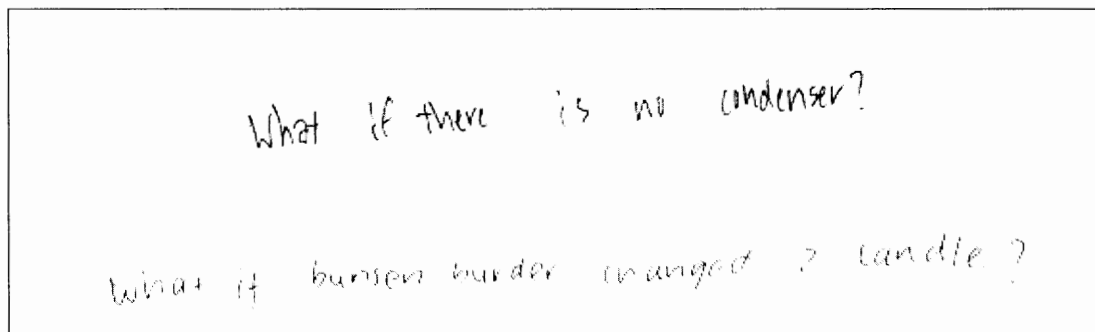 What if there is no condenser?
What if bunsen burder changed ? candle ?